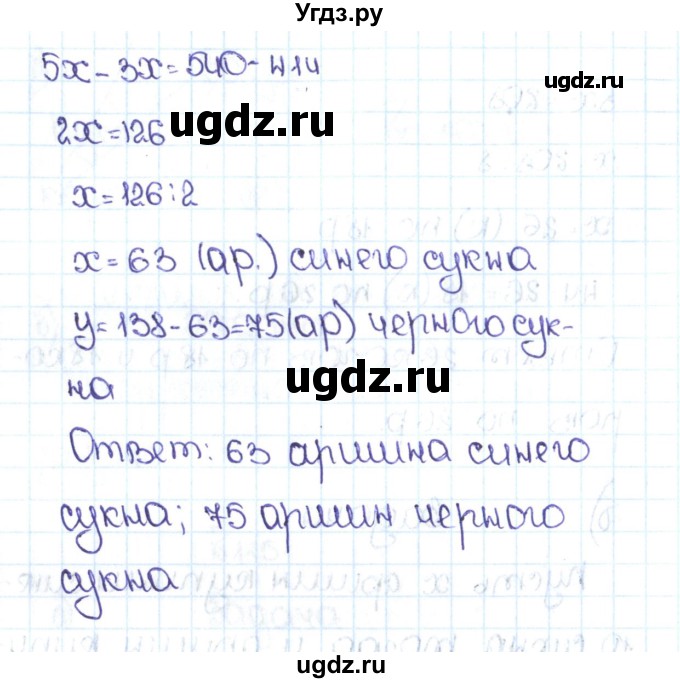 Угдз.ру
5х - 3х = 540 - 414
ugdz.ru
2х = 126
ugdz.ru
х = 126 : 2
х = 63 (ар.) синего сукна
у = 138 - 63 = 75 (ар) черного сук-
на
ugdz.ru
Ответ: 63 аршина синего
сукна; 75 аршин черного
сукна
ugdz.ru